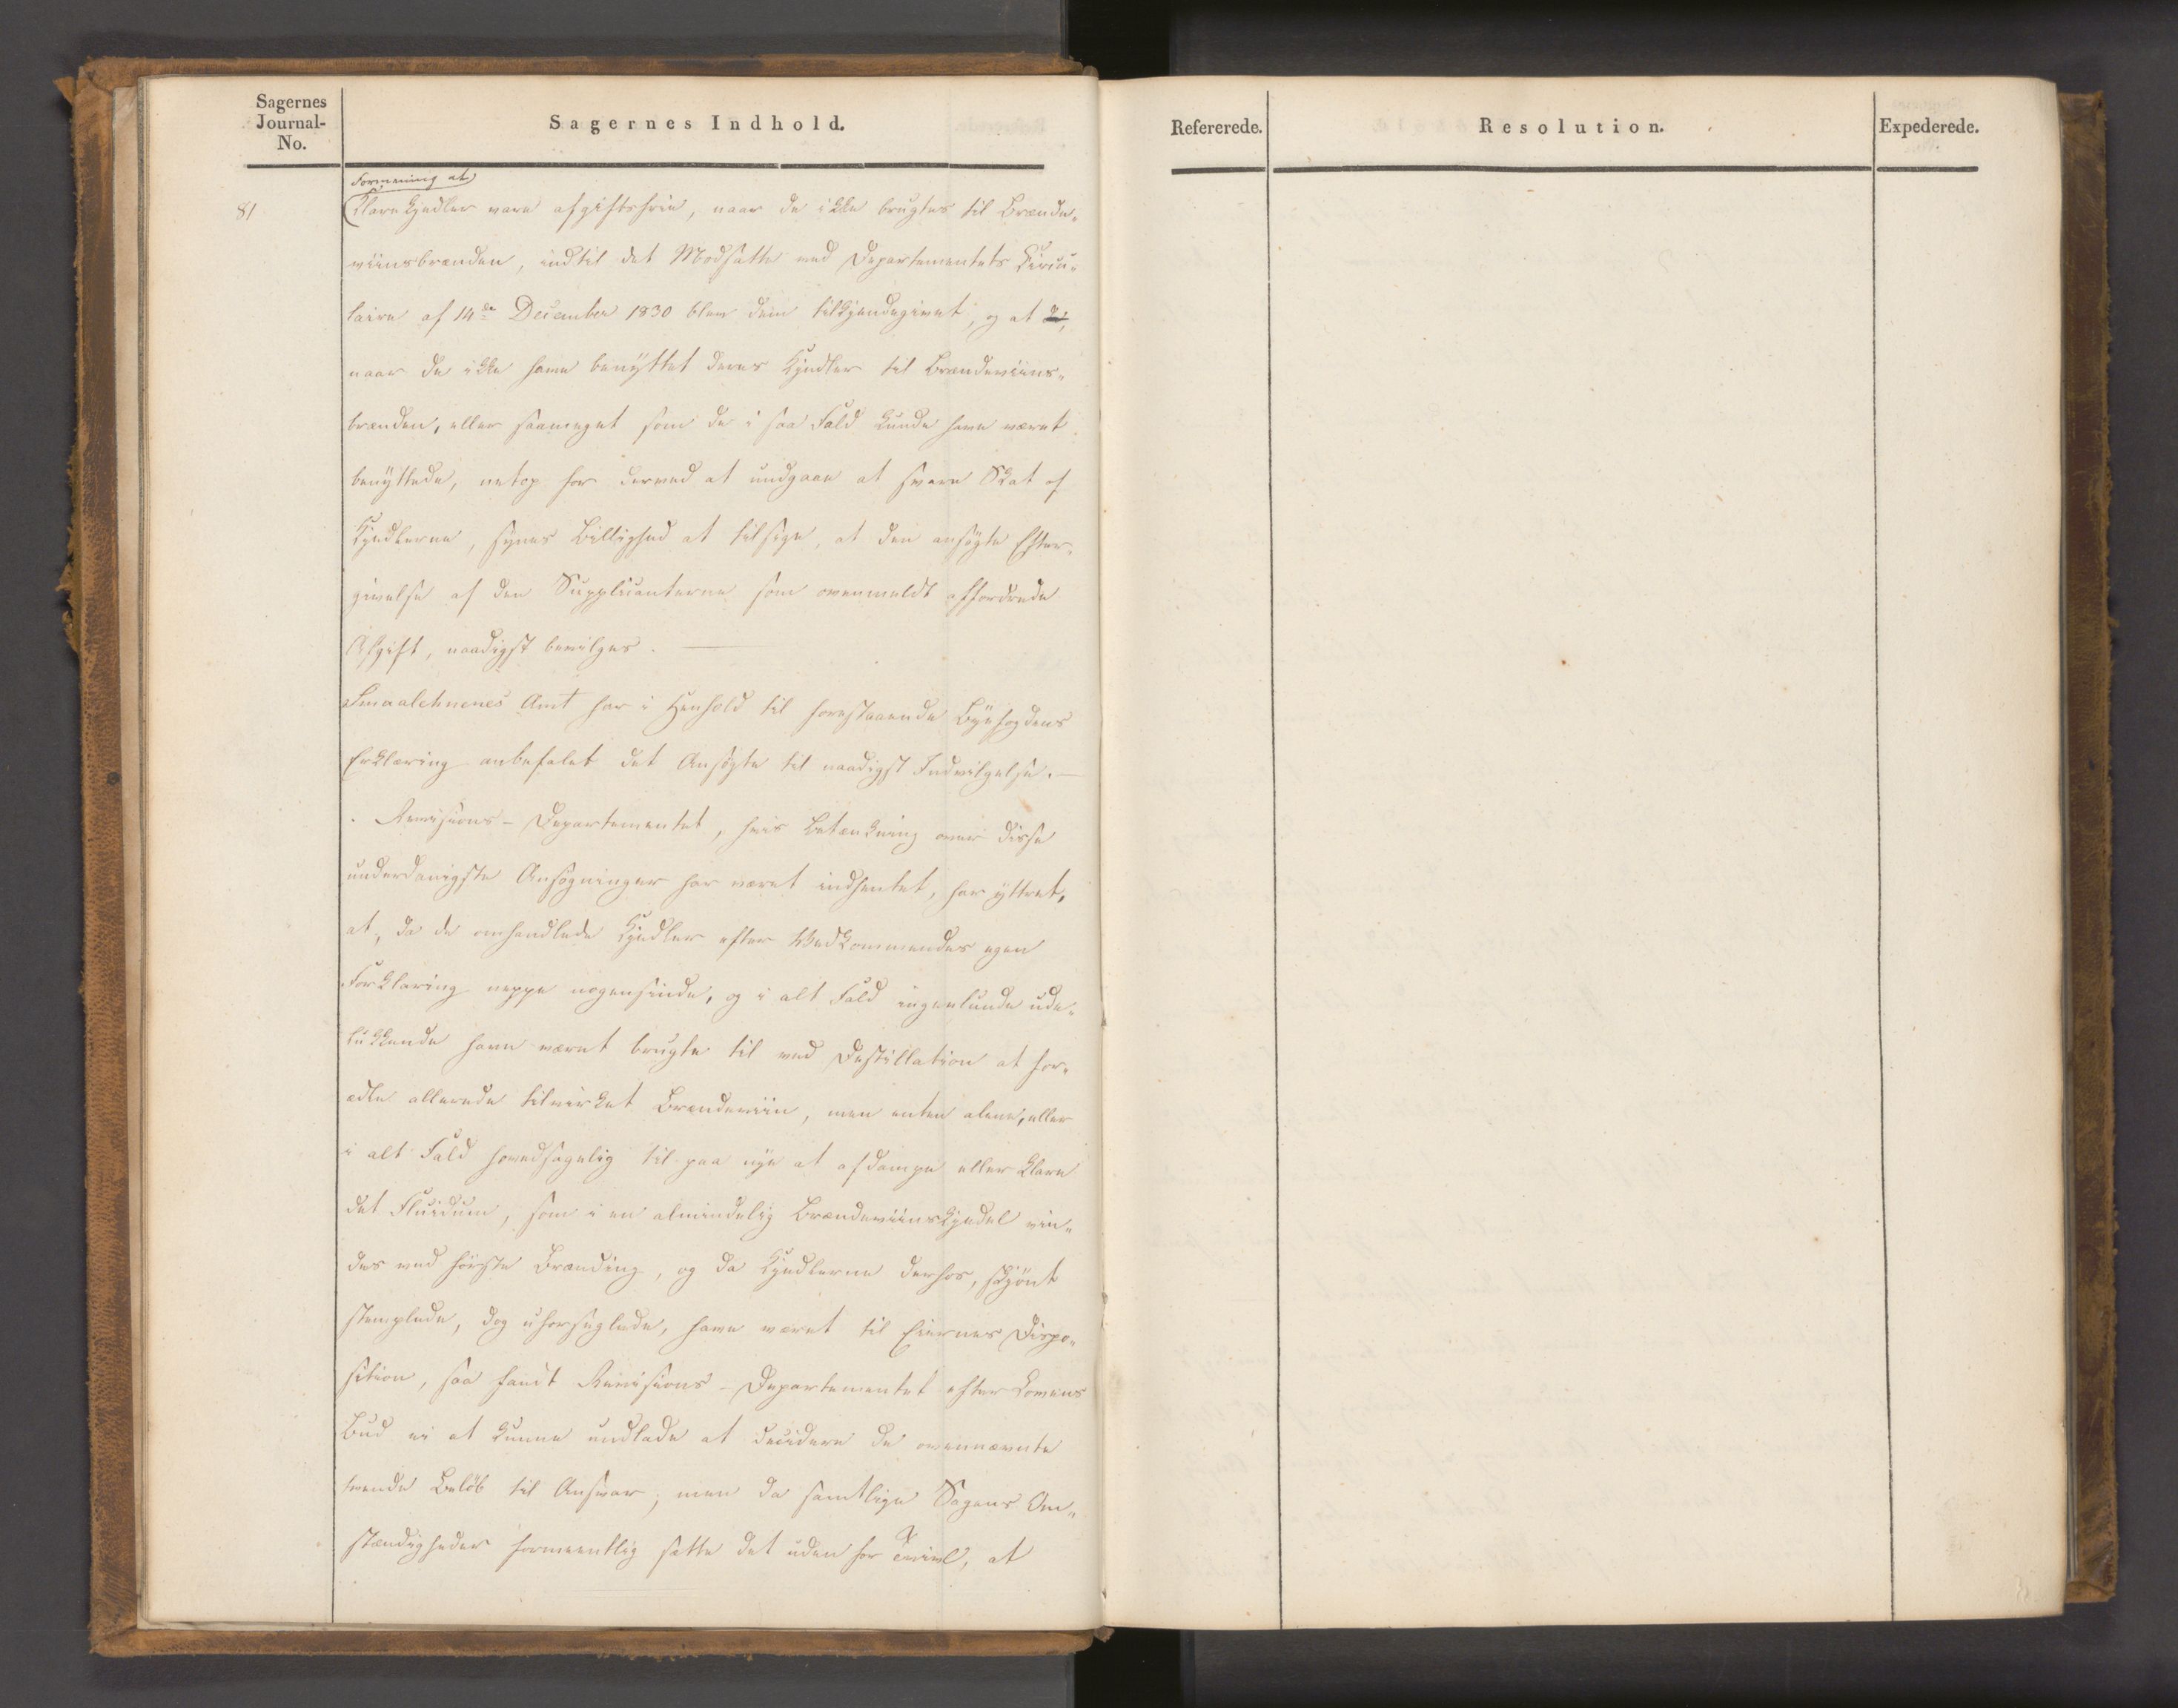 Sagernes
Journal-
No.
Sagernes Indhold.
Refererede.
Resolution.
Expederede.
Formening at
81
Klarekjedler vare afgiftsfrie, naar de ikke brugtes til Brænde-
viinsbrænden, indtil det Modsatte ved Departementets Circu-
laire af 14de December 1830 blev dem tilkjendegivet, og at
naar de ikke have benyttet deres Kjedler til Brændeviins-
brænden, eller saameget som de i saa Fald kunde have været
benyttede, netop for derved at undgaae at svare Skat af
Kjedlerne, synes Billighed at tilsige, at den ansøgte Efter-
givelse af den Supplicanterne som ovenmeldt affordrede
Afgift, naadigst bevilges.
Smaalehnenes Amt har i Henhold til forestaaende Byefogdens
Erklæring anbefalet det Ansøgte til naadigst Indvilgelse.
Revisions-Departementet, hvis Betænkning over disse
underdanigste Ansøgninger har været indhentet, har yttret,
at, da de omhandlede Kjedler efter Vedkommendes egen
Forklaring neppe nogensinde, og i alt Fald ingenlunde ude-
lukkende have været brugte til ved Destillation at for-
ædle allerede tilvirket Brændeviin, men enten alene, eller
i alt Fald hovedsagelig til paa nye at afdampe eller klare
det Fluidum, som i en almindelig Brændeviinskjedel vin-
des ved første Brænding, og da Kjedlerne derhos, skjønt
stemplede, dog uforseglede, have været til Eiernes Dispo-
sition, saa fandt Revisions-Departementet efter Lovens
Bud ei at kunne undlade at decidere de ovennævnte
tvende Beløb til Ansvar; men da samtlige Sagens Om-
stændigheder formeentlig sætte det uden for Tvivl, at